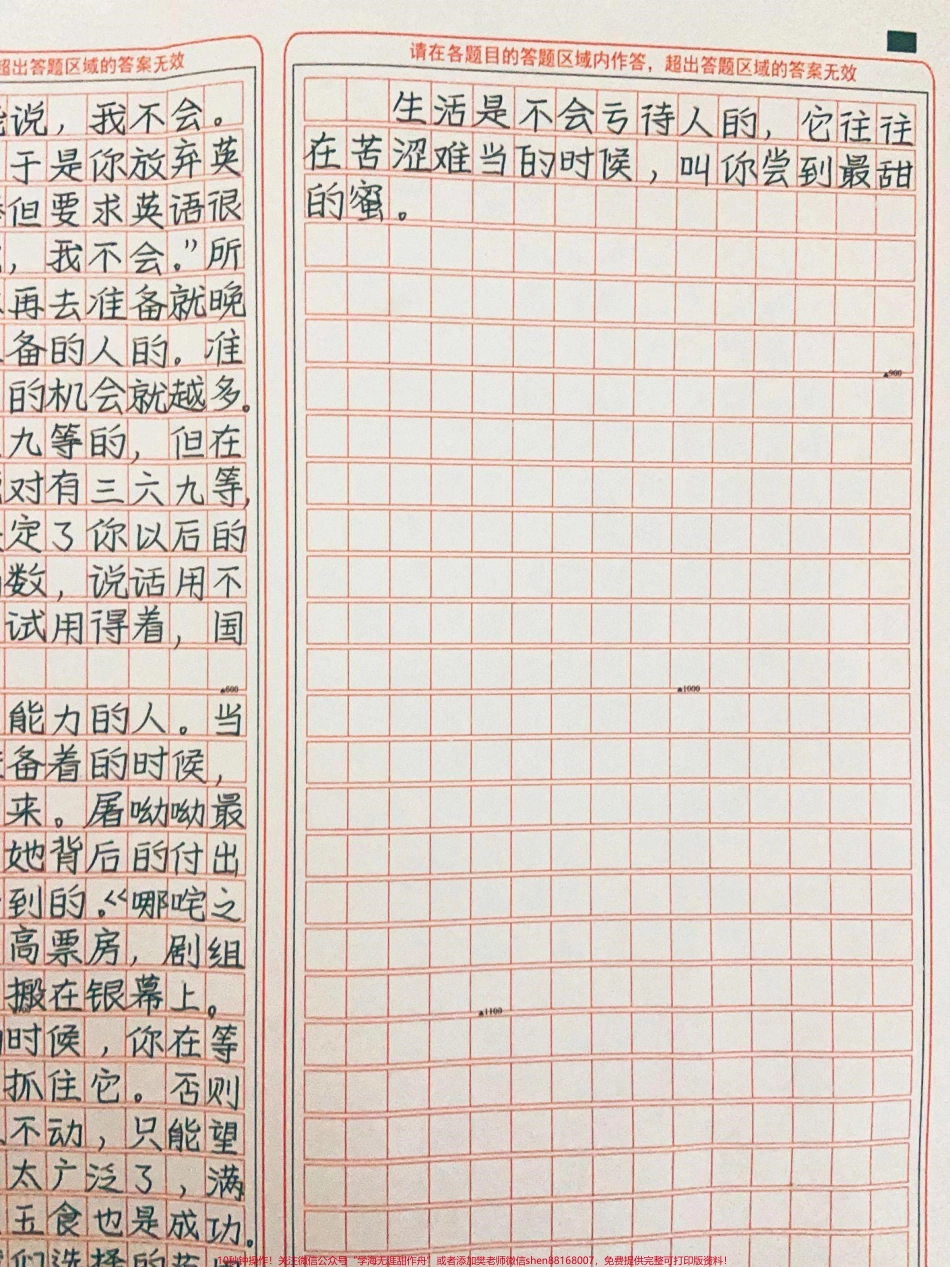 超出答题区域的答案无效
说，我不会。
于是你放弃英
但要求英语很
，我不会。”所
再去准备就晚
备的人的。准
的机会就越多。
九等的，但在
对有三六九等，
定了你以后的
数，说话用不
试用得着，国
▲600
能力的人。当
备着的时候，
来。屠呦呦最
她背后的付出
到的。《哪咤之
高票房，剧组
搬在银幕上。
时候，你在等
抓住它。否则
不动，只能望
太广泛了，满
五食也是成功。
们选择的苦
请在各题目的答题区域内作答，超出答题区域的答案无效
生活是不会亏待人的，它往往
在苦涩难当的时候，叫你尝到最甜
的蜜。
▲900
▲1000
▲1100
10秒钟操作！关注微信公众号“学海无涯甜作舟”或者添加樊老师微信shen88168007，免费提供完整可打印版资料！